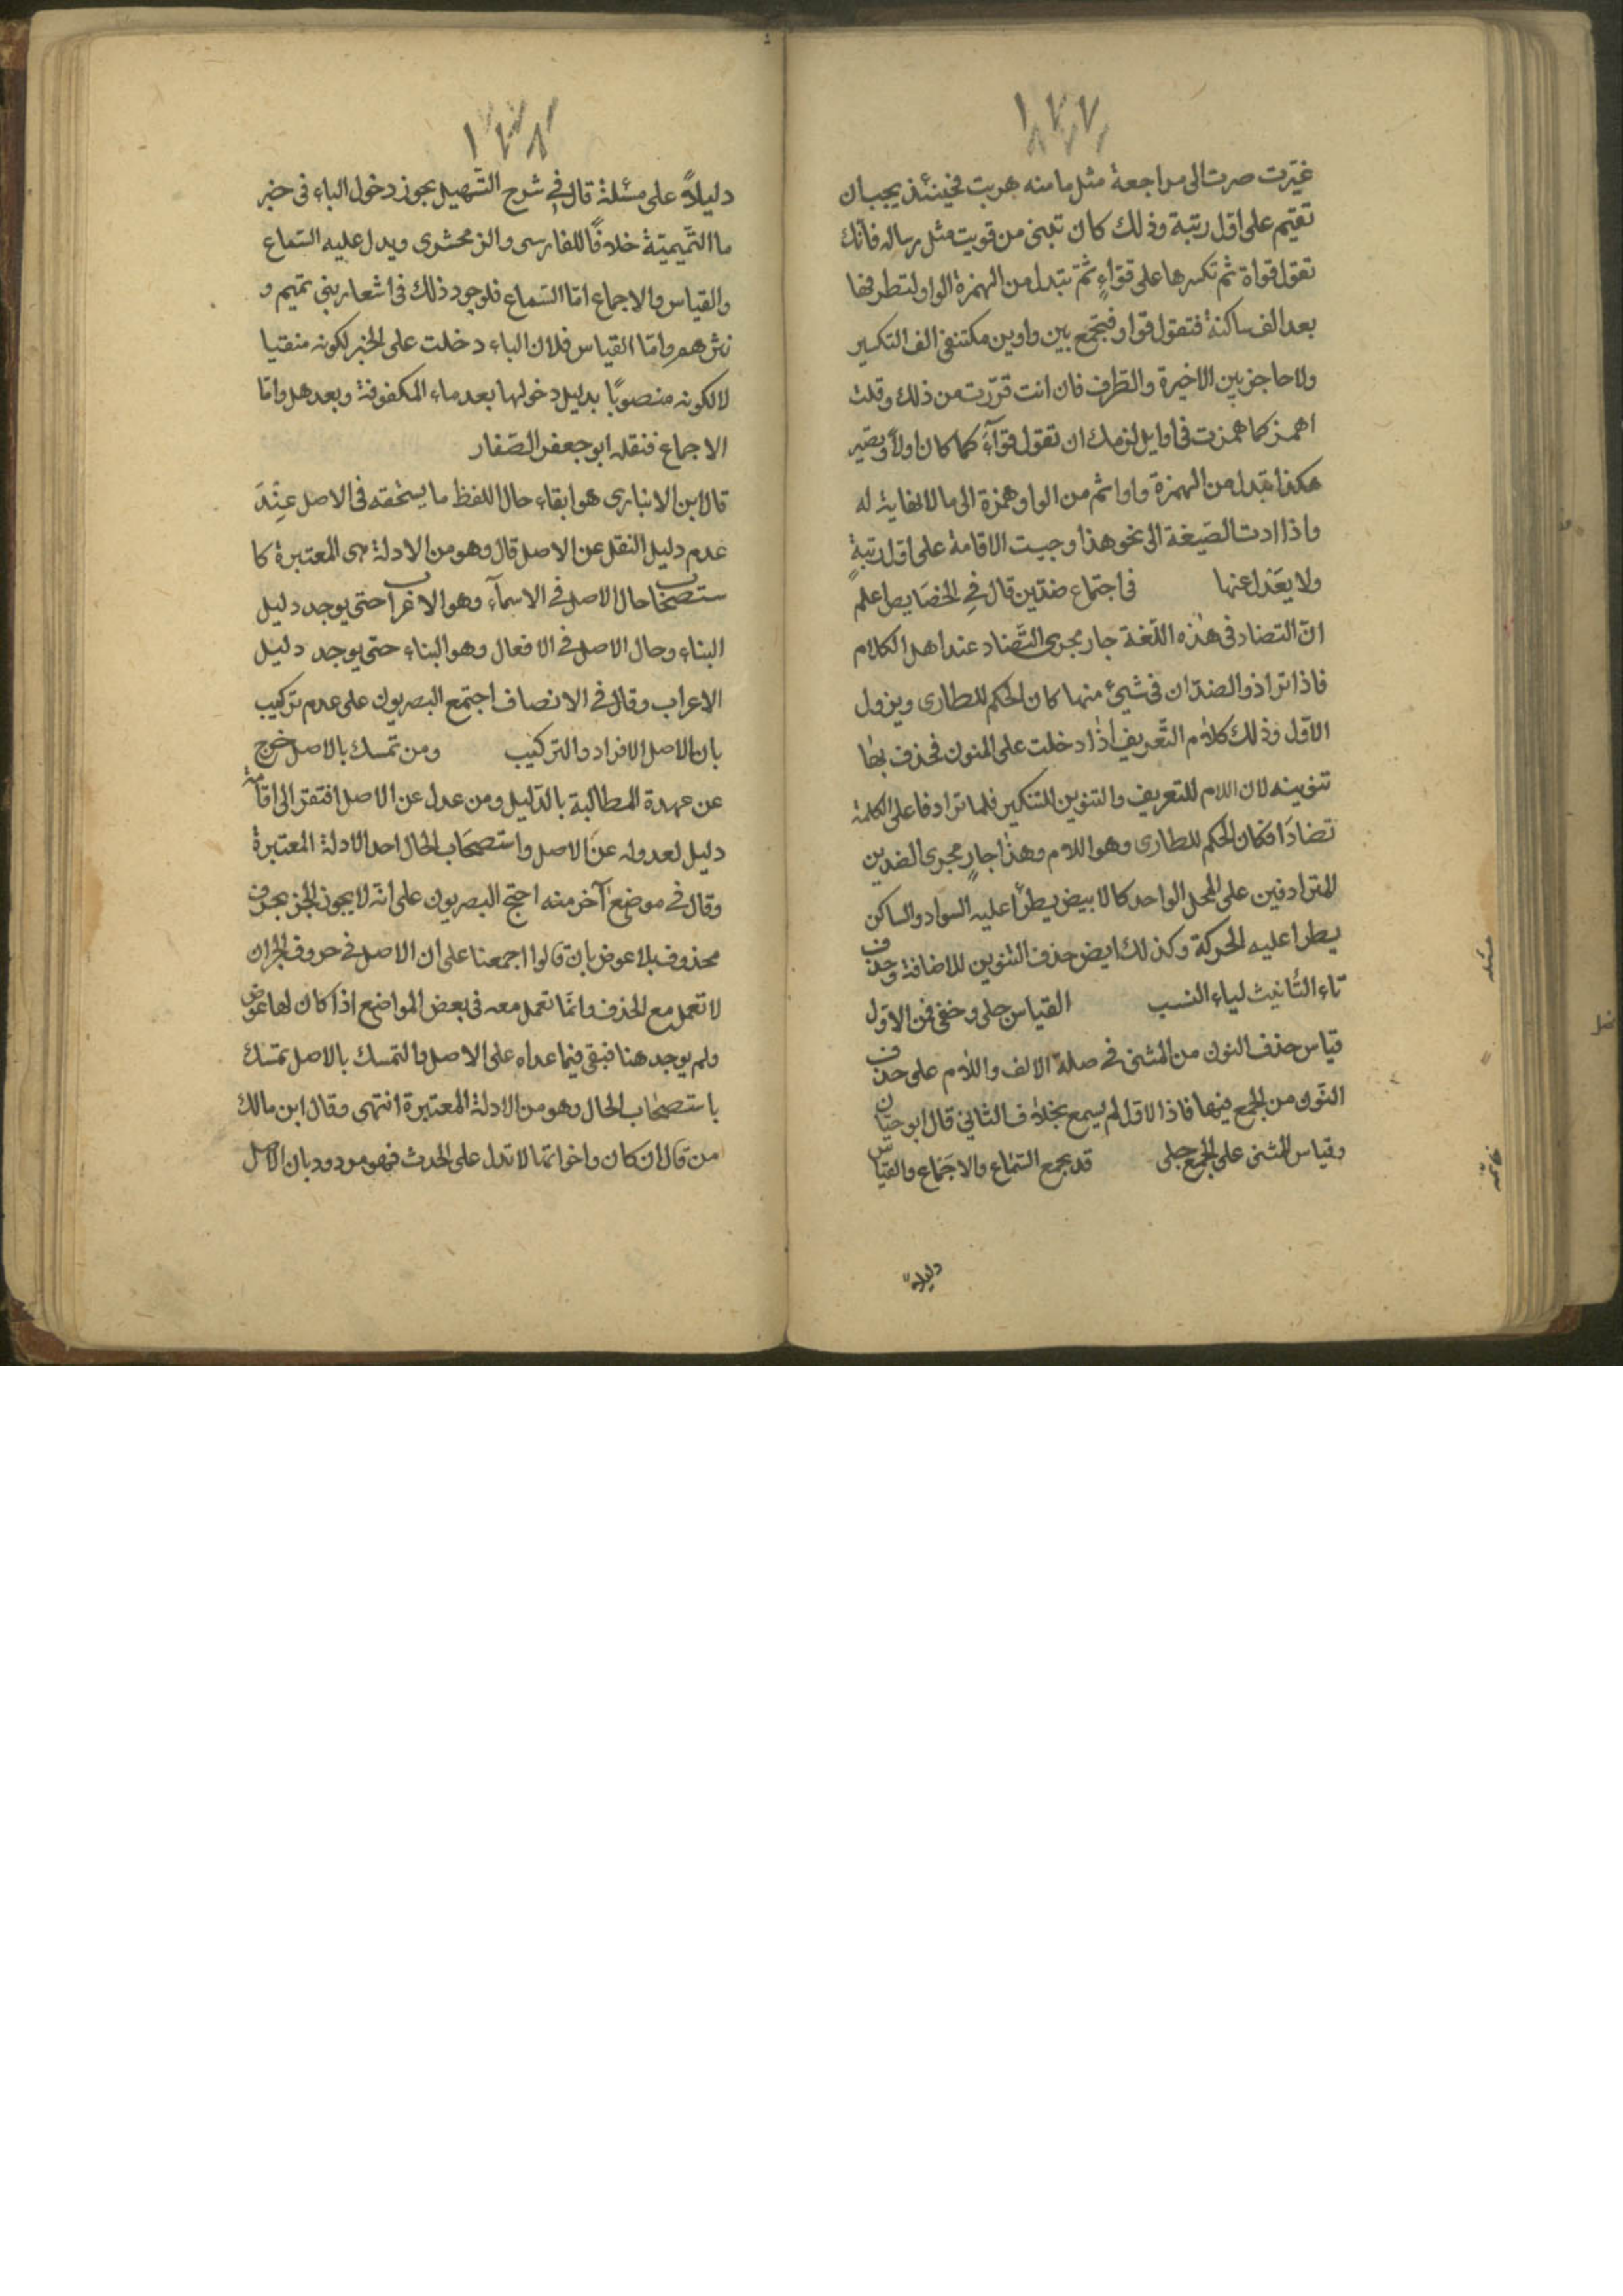 ١٧٧
غيّرت صرت الى مراجعة مثل ما منه هربت فحينئذ يجب ان
تقيم على اوّل رتبة وذلك كان تبنى من قويت مثل رساله فانّك
تقول قواة ثم تكسرها على قواءٍ ثمّ تبدل من الهمزة الواو لتطرفها
بعد الف ساكنة فتقول قواو فتجمع بين واوين مكتنفى الف التكسير
ولا حاجز بين الاخيرة والطرف فان انت قرّرت من ذلك وقلت
اهمز كما همزت فى اوايل لزمك ان تقول قوآءً كما كان اولاً ويصير
هكذا تبدل من الهمزة واوا ثم من الواو همزة الى ما لا نهاية له
واذا ادت الصّيغة الى نحو هذا وجبت الاقامة على اوّل رتبةٍ
ولا يعَدل عنها فى اجتماع ضدّين قال فى الخصَايص اعلم
انّ التضاد فى هٰذه اللّغة جار مجرى التَّضاد عند اهل الكلام
فاذا ترادف الضدّان فى شيئ منها كان الحكم للطارى ويزول
الاوّل وذلك كلام التّعريف اذٰا دخلت على المنون فحذف بها
تنوينه لان اللام للتعريف والتنوين للتنكير فلما ترادفا على الكلمة
تضادَا فكان الحكم للطارى وهو اللام وهذا جارٍ مجرى الضدين
المترادفين على المحل الواحد كالابيض يطرأ عليه السواد والساكن
يطرا عليه الحركة وكذلك ايض حذف التنوين للاضافة وحذف
تاء التّانيث لياء النسب القياس جلى وخفى فمن الاوّل
قياس حذف النون من المثنى فى صلة الالف واللام على حذف
النّون من الجمع فيها فاذا الاوّل لم يسمع بخلاف الثانى قال ابو حيّان
وقياس المثنى على الجمع جلى قد يجمع السّماع والاجَماع والقياس
دليلاً
مسئله
خاتمه
١٧٨
دليلاً على مسئلة قال فى شرح التّسهيل يجوز دخول الباء فى خبر
ما التّميميّة خلافًا للفارسى والزمحشرى ويدل عليه السّماع
والقياس والاجماع امّا السّماع فلوجود ذلك فى اشعار بنى تميم و
نثرهم وامّا القياس فلان الباء دخلت على الخبر لكونه منفيا
لا لكونه منصوبًا بدليل دخولها بعد ماء المكفوفة وبعد هل وامّا
الاجماع فنقله ابو جعفر الصّفار
قال ابن الانبارى هو ابقاء حال اللفظ ما يستحقه فى الاصل عِنْدَ
عدم دليل النقل عن الاصل قال وهو من الادلة المعتبرة كا
ستصحٰاب حال الاصل فى الاسمآء وهو الاعراب حتى يوجد دليل
البناء وحال الاصل فى الافعال وهو البناء حتى يوجد دليل
الاعراب وقال فى الانصاف اجتمع البصريون على عدم تركيب
بان الاصل الافراد والتركيب ومن تمسك بالاصل خرج
عن عهدة المطالبة بالدّليل ومن عدل عن الاصل افتقر الى اقامة
دليل لعدوله عنَ الاصل واستصحَاب الحال احد الادلة المعتبرة
وقال فى موضع آخر منه احتج البصريون على انّه لا يجوز الجرّ بحرف
محذوف بلا عوض بان قالوا اجمعنا على ان الاصل فى حروف الجر ان
لا تعمل مع الحذف وانّما تعمل معه فى بعض المواضع اذا كان لها عوض
ولم يوجد هنا فبقى فيما عداه على الاصل والتمسك بالاصل تمسّك
باستصحاب الحال وهو من الادلة المعتبرة انتهى وقال ابن مالك
من قال ان كان واخواتها لا تدل على الحدث فهو مردود بان الاصل